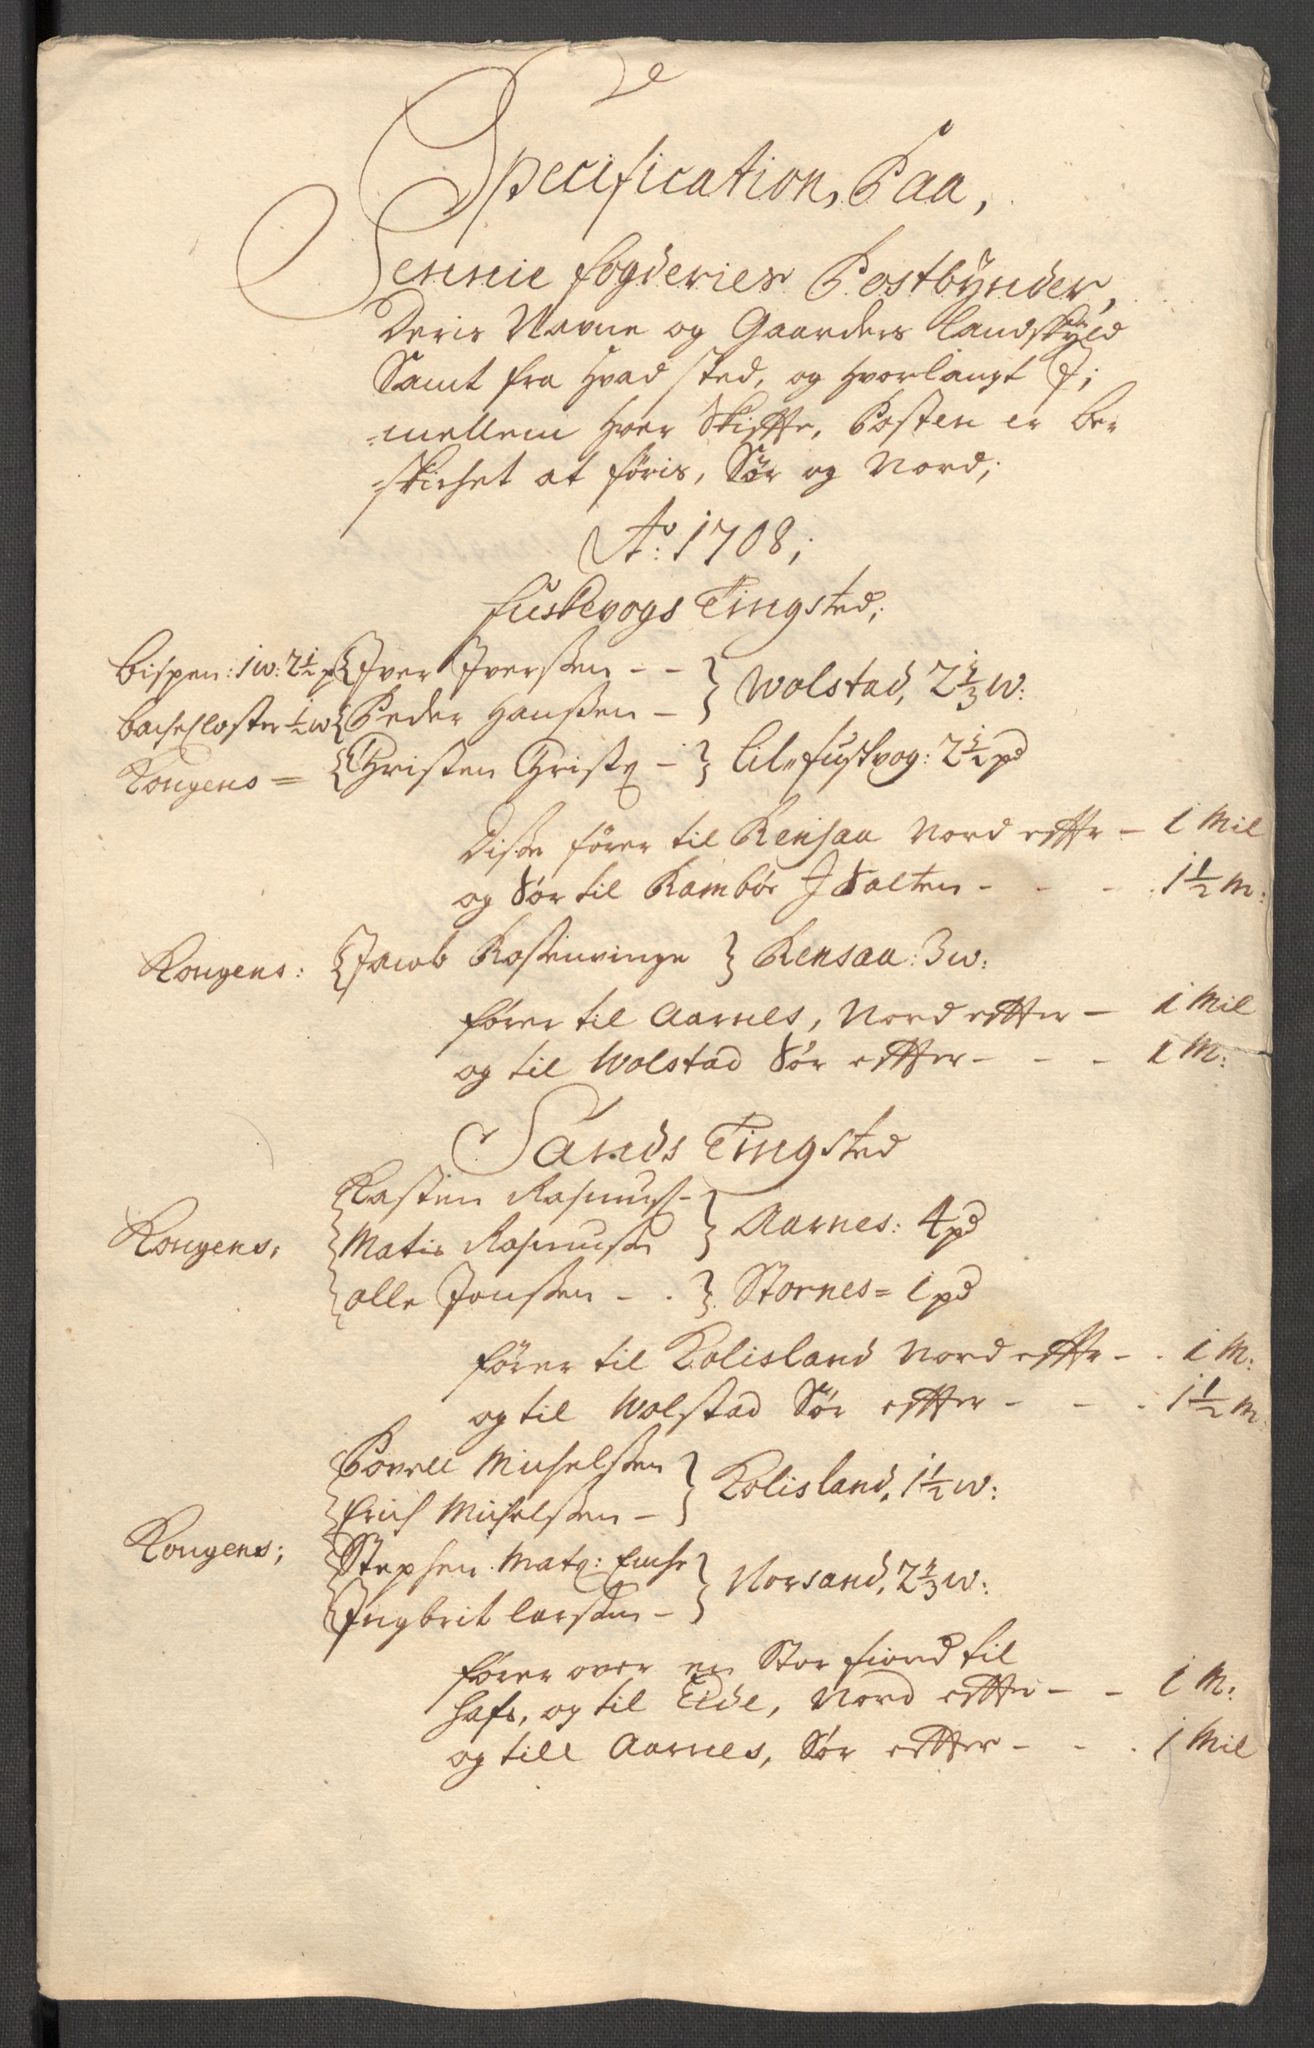 Specification, Paa,
Sennie fogderies Postbynder,
Deris Navne og Gaarders landskyld
Samt fra Hvad sted, og Hvorlangt J;
mellem Hver Skiffte, Posten er be-
skichet at føris, Sør og Nord;
Ao: 1708;
fuskevogs Tingsted;
bispen: 1 w: 2½ p { Jver Jverssen - - } Wolstad, 2⅓ w:
bachecloster ½ w { Peder Hanssen -
Kongens = { Christen Christ - } lile fuskvog: 2½ pd
Disse fører til Rensaa Nord effter - 1 Mil
og Sør til Rambøe J Salten - - - 1½ M:
Kongens: { Jacob Rossenvinge } Rensaa: 3 w:
fører til Aarnes, Nord effter - 1 Mil
og til Wolstad Sør effter - - - 1 M:
Sands Tingsted
Kasten Rasmuss-
Kongens; Matis Rasmussen } Aarnes: 4 pd
olle Jonssen - . } Stornes = 1 pd
fører til Kolisland Nord effter - . 1 M:
og til Wolstad Sør effter - - . 1½ M:
Povell Michelssen } Kolisland, 1½ w:
Erich Michelssen -
Kongens; Stephen Mat: Enche } Norsand, 2⅓ w:
Jngbrit larssen -
fører over en Stor fiord til
Hafs, og til Eide, Nord effter - - 1 M:
og till Aarnes, Sør effter - - . 1 Mil